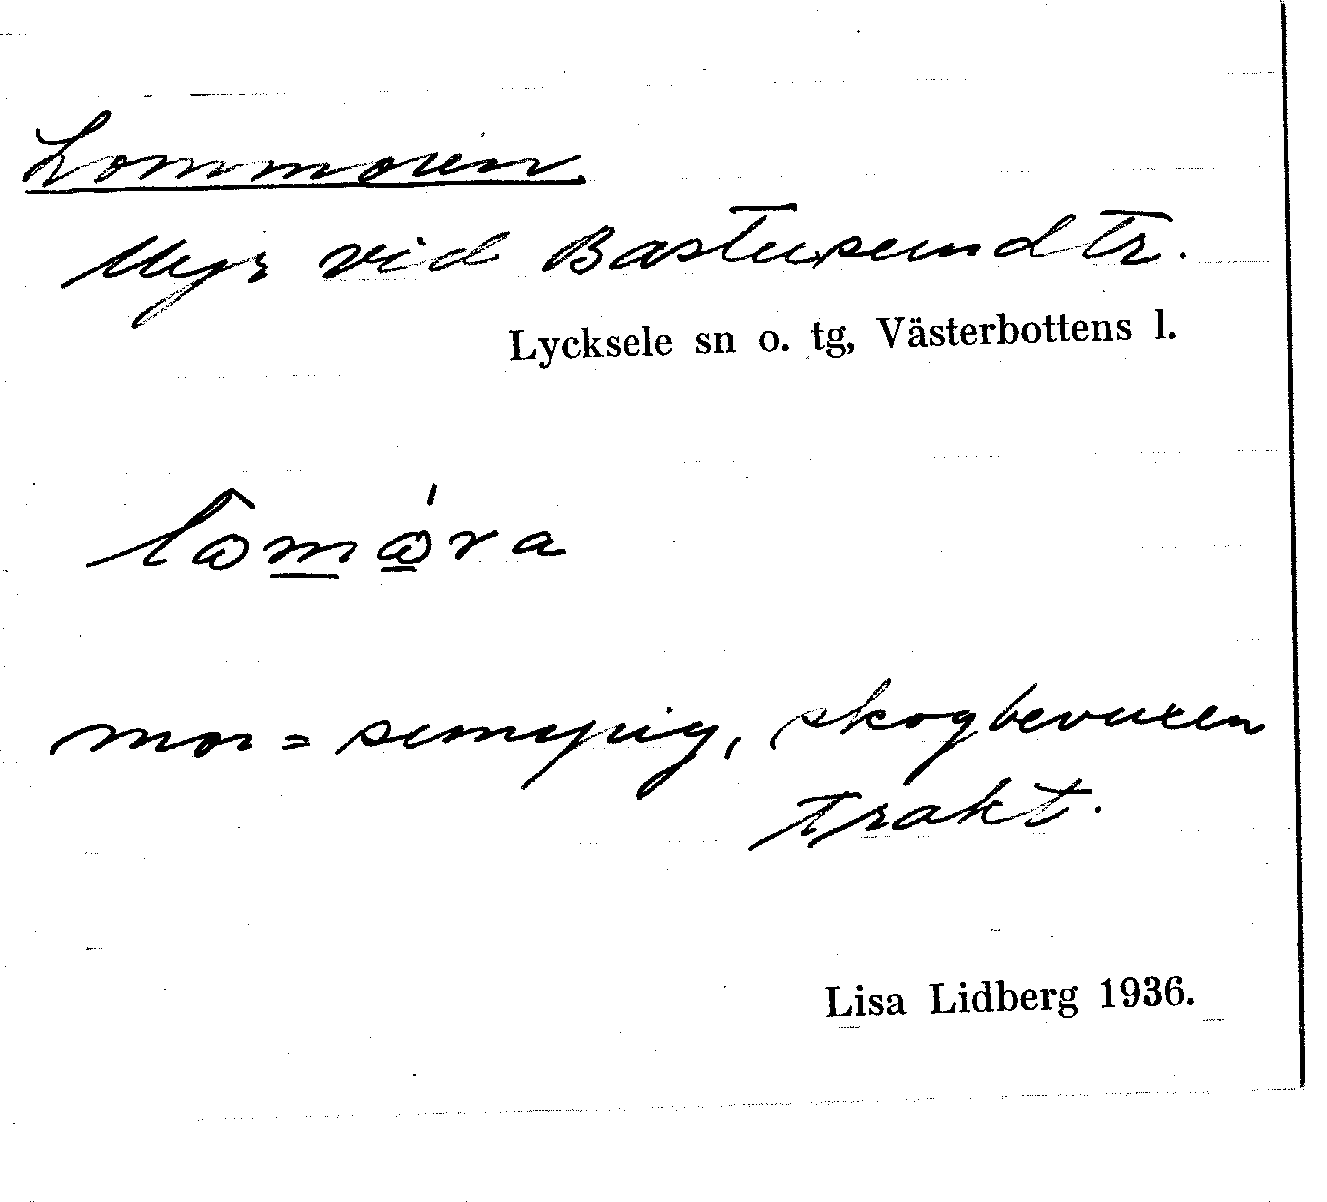 Lommoren
Myr vid Bastusundtr.
Lycksele sn o. tg, Västerbottens l.
mor = sumpig, skogbevuxen
trakt.
Lisa Lidberg 1936.